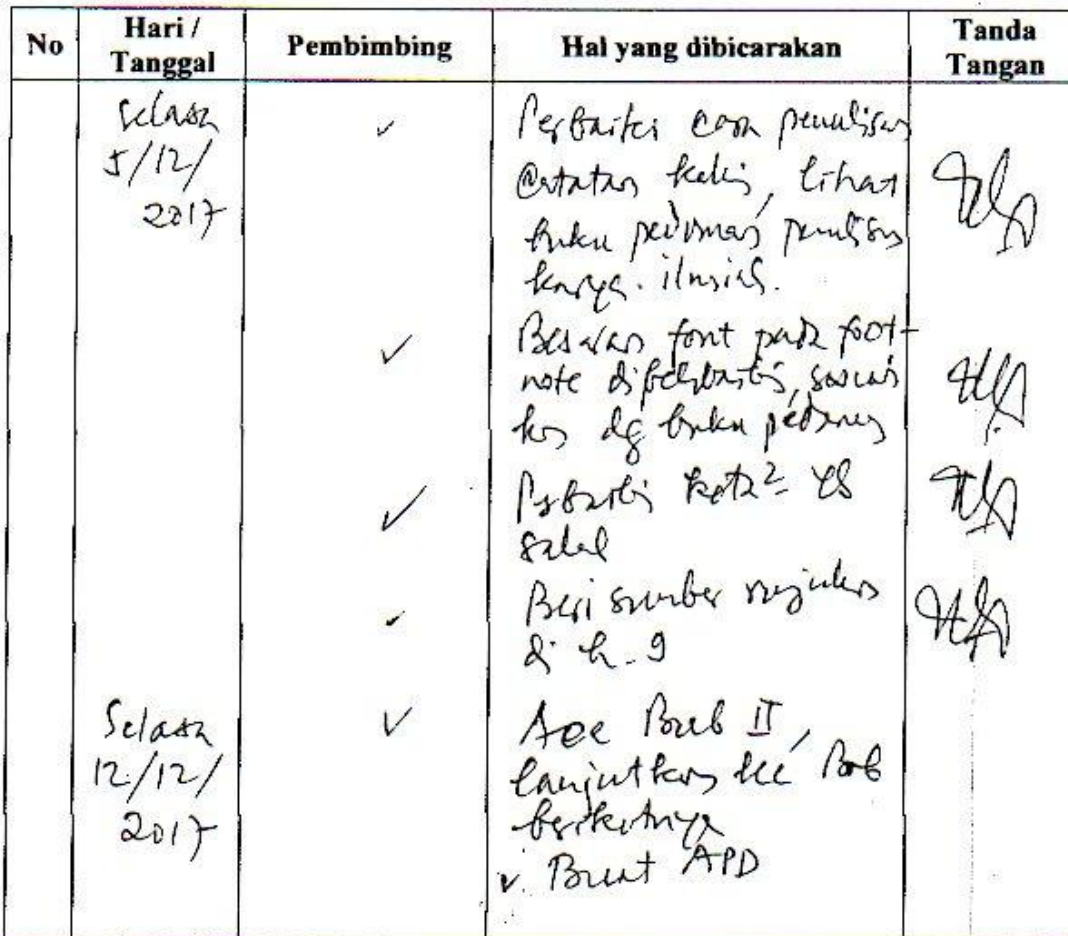 No
Hari /
Tanggal
Pembimbing
Hal yang dibicarakan
Tanda
Tangan
Selasa
5/12/
2017
Perbaiki cara penulisan
Catatan kaki, lihat
buku pedoman penulisan
karya ilmiah.
Besaran font pada foot-
note diperbaiki, sesuai
kan dg buku pedoman
Perbaiki kata2 yg
salah
Beri sumber rujukan
di h. 9
Selasa
12/12/
2017
Acc Bab II,
lanjutkan ke Bab
berikutnya
Buat APD